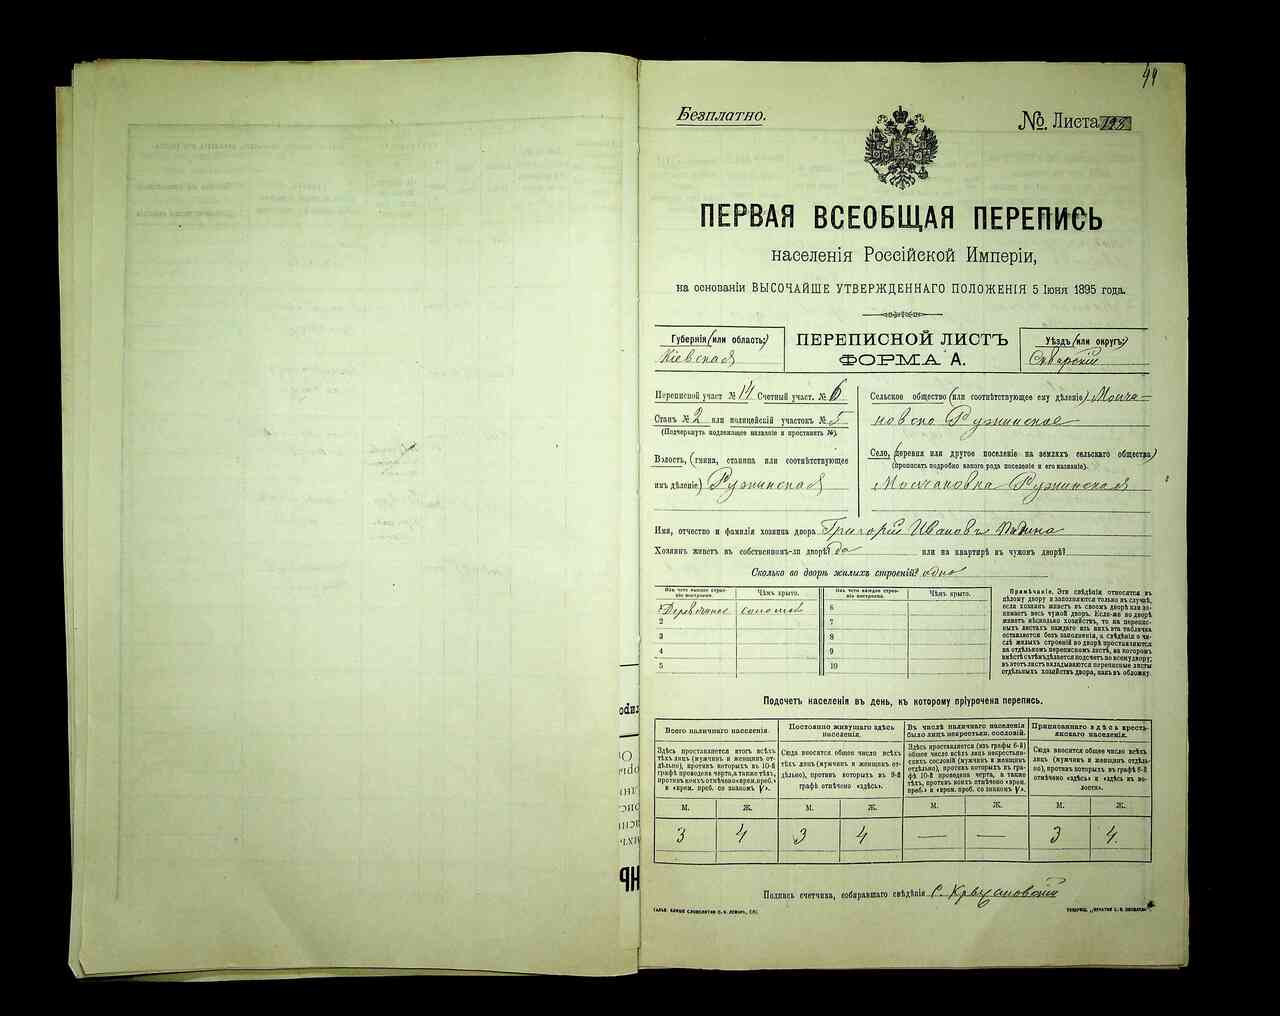 44
Безплатно.
№. Листа 198
ПЕРВАЯ ВСЕОБЩАЯ ПЕРЕПИСЬ
населенія Россійской Имперіи,
на основаніи ВЫСОЧАЙШЕ УТВЕРЖДЕННАГО ПОЛОЖЕНІЯ 5 Іюня 1895 года.
Губернія (или область:)
Кіевская
ПЕРЕПИСНОЙ ЛИСТЪ
ФОРМА А.
Уѣздъ (или округъ:)
Сквирскій
Переписной участ № 14 Счетный участ. № 6
Станъ № 2 или полицейскій участокъ №
(Подчеркнуть подлежащее названіе и проставить №).
Волость, (гмина, станица или соотвѣтствующее
имъ дѣленіе) Ружинская
Сельское общество (или соотвѣтствующее ему дѣленіе) Молча-
новско Ружинское
Село, деревня или другое поселеніе на земляхъ сельскаго общества)
(прописать подробно какого рода поселеніе и его названіе).
Молчановка Ружинская
Имя, отчество и фамилія хозяина двора Григорій Ивановъ
Хозяинъ живетъ въ собственномъ-ли дворѣ? да или на квартирѣ въ чужомъ дворѣ?
Сколько во дворѣ жилыхъ строеній? одно
Изъ чего каждое строе-
ніе построено.
Чѣмъ крыто.
Изъ чего каждое строе-
ніе построено.
Чѣмъ крыто.
1 Деревянное соломой 6
2 7
3 8
4 9
5 10
Примѣчаніе. Эти свѣдѣнія относятся къ
цѣлому двору и заполняются только въ случаѣ,
если хозяинъ живетъ въ своемъ дворѣ или за-
нимаетъ весь чужой дворъ. Если-же во дворѣ
живетъ нѣсколько хозяйствъ, то на перепис-
ныхъ листахъ каждаго изъ нихъ эта табличка
оставляется безъ заполненія, а свѣдѣнія о чи-
слѣ жилыхъ строеній во дворѣ проставляются
на отдѣльномъ переписномъ листѣ, на которомъ
вмѣстѣ съ тѣмъ дѣлается подсчетъ по всему двору;
въ этотъ листъ вкладываются переписные листы
отдѣльныхъ хозяйствъ двора, какъ въ обложку.
Подсчетъ населенія въ день, къ которому пріурочена перепись.
Всего наличнаго населенія.
Здѣсь проставляется итогъ всѣхъ
тѣхъ лицъ (мужчинъ и женщинъ от-
дѣльно), противъ которыхъ въ 10-й
графѣ проведена черта, а также тѣхъ,
противъ коихъ отмѣчено «врем. преб.»
и «врем. преб. со знакомъ V».
Постоянно живущаго здѣсь
населенія.
Сюда вносится общее число всѣхъ
тѣхъ лицъ (мужчинъ и женщинъ от-
дѣльно), противъ которыхъ въ 9-й
графѣ отмѣчено «здѣсь».
Въ числѣ наличнаго населенія
было лицъ некрестьян. сословій.
Здѣсь проставляется (изъ графы 6-й)
общее число всѣхъ лицъ некрестьян-
скихъ сословій (мужчинъ и женщинъ
отдѣльно), противъ которыхъ въ гра-
фѣ 10-й проведена черта, а также
тѣхъ, противъ коихъ отмѣчено «врем.
преб.» и «врем. преб. со знакомъ V».
Приписаннаго здѣсь кресть-
янскаго населенія.
Сюда вносится общее число всѣхъ
лицъ (мужчинъ и женщинъ отдѣль-
но), противъ которыхъ въ графѣ 8-й
отмѣчено «здѣсь» и «здѣсь въ во-
лости».
М. Ж. М. Ж. М. Ж. М. Ж.
3 4 3 4 — — 3 4.
Подпись счетчика, собиравшаго свѣдѣнія С.